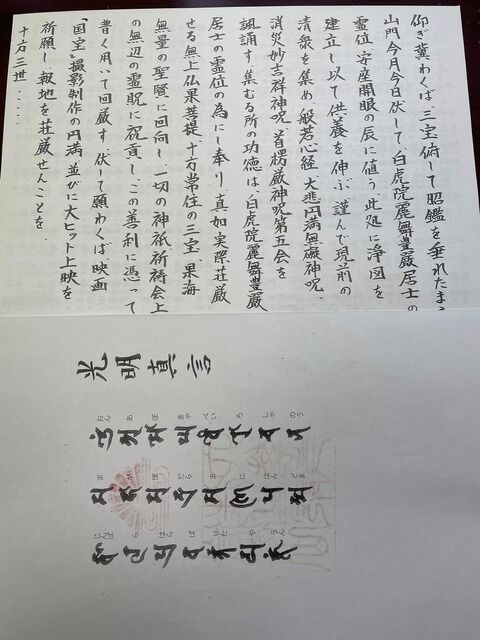 仰ぎ冀わくは、三宝俯して昭鑑を垂れたまえ
山門今月今日伏して、白虎院麗舞豊巌居士の
霊位、安座開眼の辰に値う。此処に浄図を
建立し以て供養を伸ぶ。謹んで現前の
清衆を集め、般若心経、大悲円満無礙神呪、
消災妙吉祥神呪、首楞厳神呪第五会を
諷誦す。集むる所の功徳は、白虎院麗舞豊巌
居士の霊位の為にし奉り、真如実際荘厳
せる無上仏果菩提、十方常住の三宝、果海
無量の聖賢に回向し、一切の神祇祈祷会上
の無辺の霊貺に祝貢し、この善利に憑って
普く用いて回厳す。伏して願わくは映画
「国宝」撮影制作の円満並びに大ヒット上映を
祈願し、報地を荘厳せんことを。
十方三世.....
光明真言
おん あ ぼ きゃ べい ろ しゃ のう
ま か ぼ だら ま に はん どま
じんば ら はら ば りた や うん